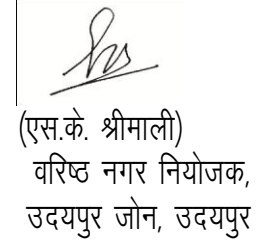 (एस.के. श्रीमाली)
वरिष्ठ नगर नियोजक,
उदयपुर जोन, उदयपुर